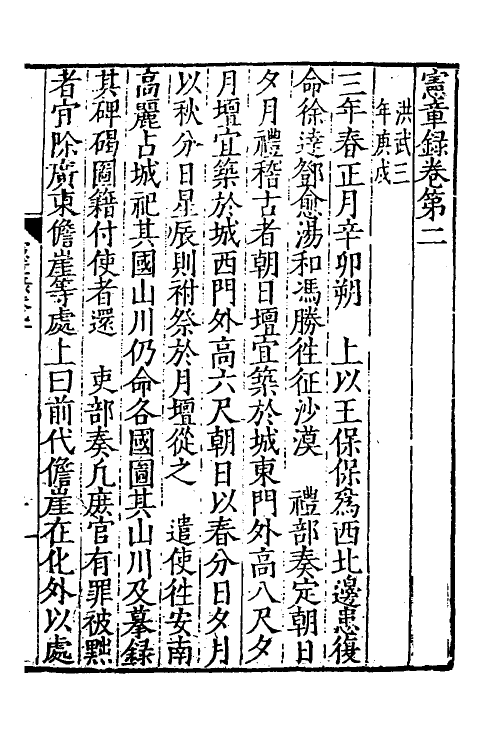 憲章錄卷第二
洪武三
年庚戌
三年春正月辛卯朔　上以王保保爲西北邊患復
命徐達鄧愈湯和馮勝徃征沙漠　禮部奏定朝日
夕月禮稽古者朝日壇宜築於城東門外高八尺夕
月壇宜築於城西門外高六尺朝日以春分日夕月
以秋分日星辰則祔祭於月壇從之　遣使徃安南
高麗占城祀其國山川仍命各國圖其山川及摹録
其碑碣圖籍付使者還　吏部奏凡庶官有罪被黜
者宜除廣東儋崖等處上曰前代儋崖在化外以處